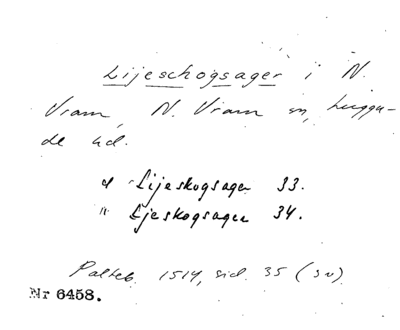 Lijeschogsager i N.
Vram, N. Vram sn, Luggu-
de hd.
d Lijeskogsager 33.
" Ljeskogsager 34.
Palteb. 1514, sid. 35 (sv)
Nr 6458.